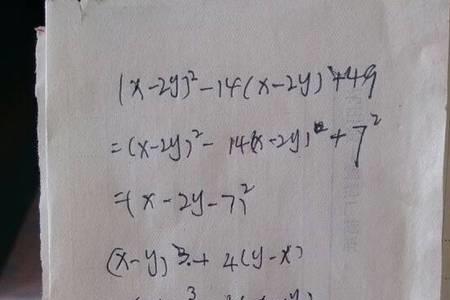 (x-2y)²-14(x-2y)+49
=(x-2y)²-14(x-2y)+7²
=(x-2y-7)²
(x-y)³+4(y-x)